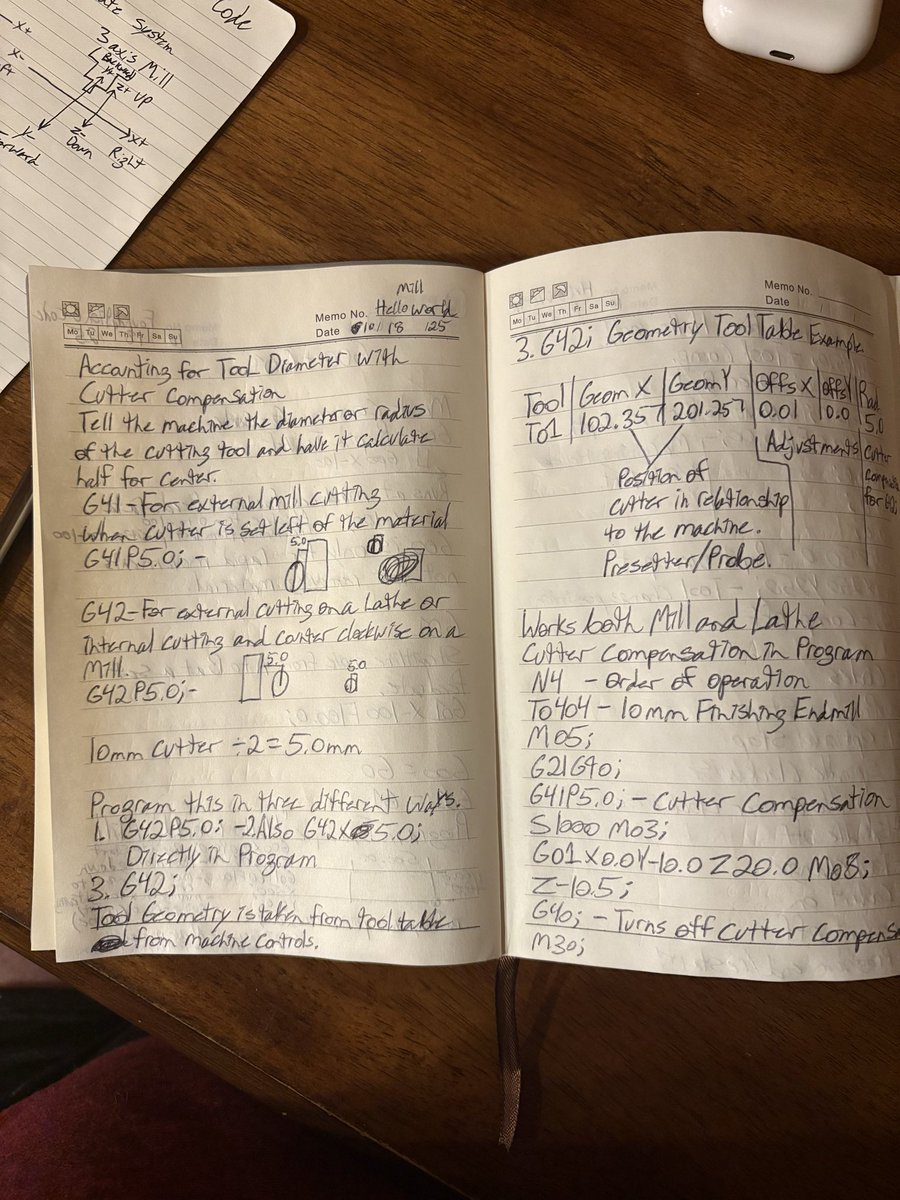 Code
System
3 axis Mill
X+
X-
Backward
Z+ Up
Y-
Z-
Down
X+
Right
Mill
Memo No. Hello World
Mo Tu We Th Fr Sa Su
Date 10/18/25
Accounting for Tool Diameter With
Cutter Compensation
Tell the machine the diameter or radius
of the cutting tool and have it calculate
half for center.
G41-For external mill cutting
When cutter is set left of the material
5.0
G41P5.0; -
G42-For external cutting on a Lathe or
internal cutting and counter clockwise on a
Mill.
5.0
5.0
G42P5.0;-
10mm cutter ÷2=5.0mm
Program this in three different ways.
1. G42P5.0; -2.Also G42X5.0;
Directly in Program
3. G42;
Tool Geometry is taken from tool table
from machine controls.
Memo No.
Mo Tu We Th Fr Sa Su
Date
3. G42; Geometry Tool Table Example
Tool Geom X Geom Y Offs X Offs Y Rad
T01 102.357 201.257 0.01 0.0 5.0
Adjustments
Cutter
for G42;
Position of
cutter in relationship
to the machine.
Presetter/Probe.
Works both Mill and Lathe
Cutter Compensation in Program
N4 - Order of operation
T0404 - 10mm Finishing Endmill
M05;
G21G90;
G41P5.0; - Cutter Compensation
S1000 M03;
G01X0.0Y-10.0 Z20.0 M08;
Z-10.5;
G40; - Turns off Cutter Compens
M30;